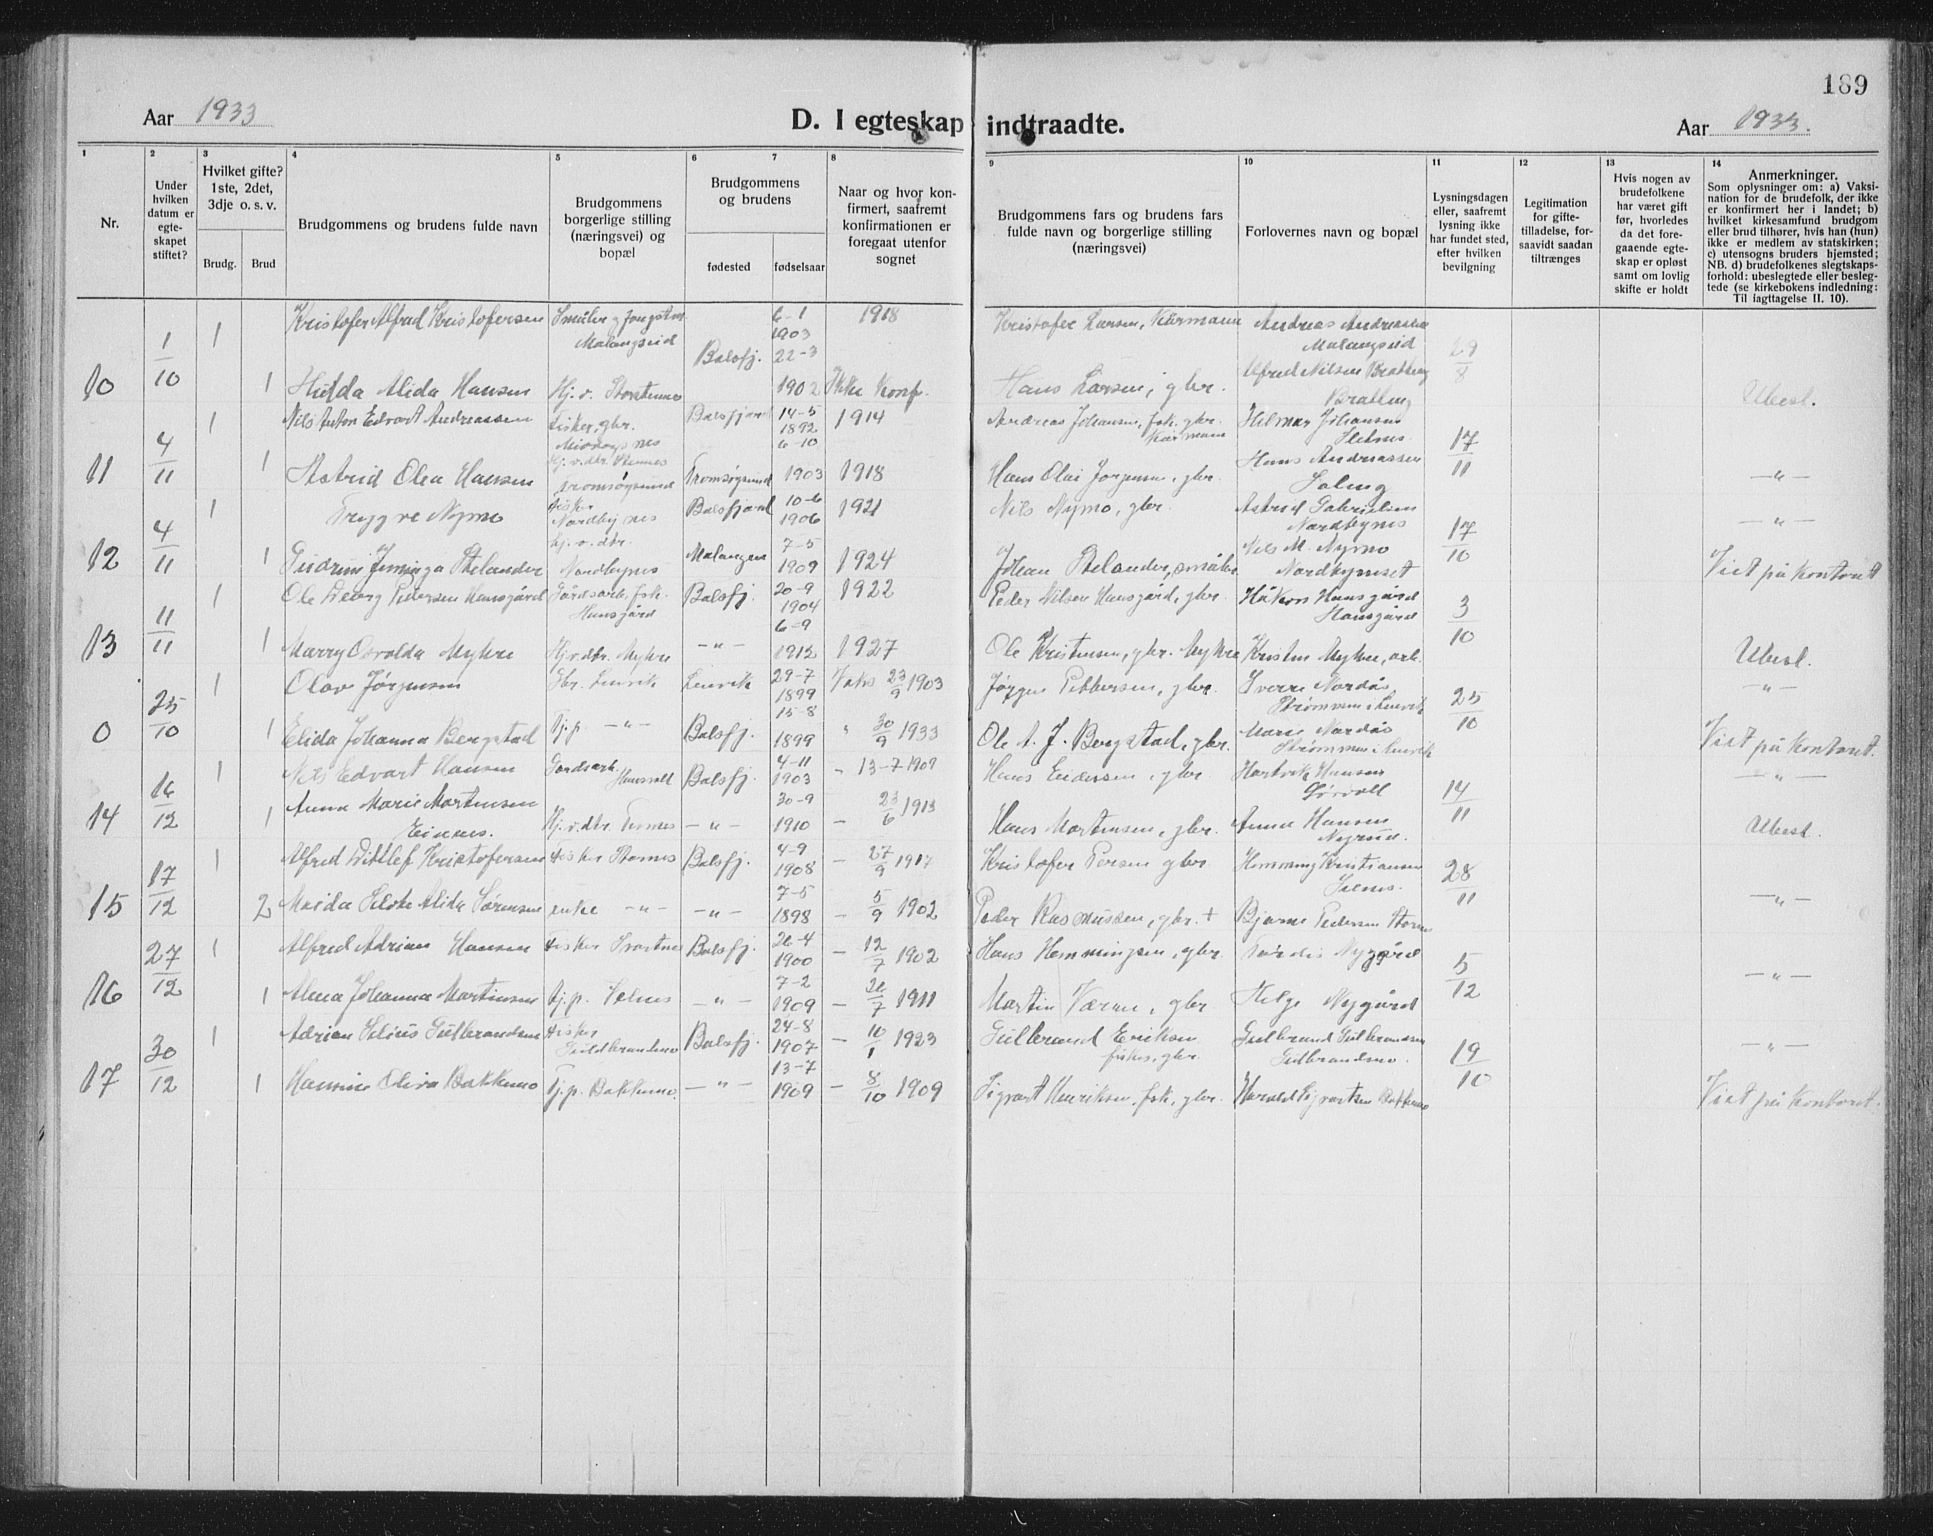 189
Aar 1933
D. I egteskap indtraadte.
Aar 1933.
1 2 3 4 5 6 7 8 9 10 11 12 13 14
Nr.
Under hvilken datum er egte-skapet stiftet?
Hvilket gifte? 1ste, 2det, 3dje o. s. v.
Brudg.
Brud
Brudgommens og brudens fulde navn
Brudgommens borgerlige stilling (næringsvei) og bopæl
Brudgommens og brudens
fødested
fødselsaar
Naar og hvor kon-firmert, saafremt konfirmationen er foregaat utenfor sognet
Brudgommens fars og brudens fars fulde navn og borgerlige stilling (næringsvei)
Forlovernes navn og bopæl
Lysningsdagen eller, saafremt lysning ikke har fundet sted, efter hvilken bevilgning
Legitimation for gifte-tilladelse, for-saavidt saadan tiltrænges
Hvis nogen av brudefolkene har været gift før, hvorledes da det fore-gaaende egte-skap er opløst samt om lovlig skifte er holdt
Anmerkninger.
Som oplysninger om: a) Vaksi-nation for de brudefolk, der ikke er konfirmert her i landet; b) hvilket kirkesamfund brudgom eller brud tilhører, hvis han (hun) ikke er medlem av statskirken; c) utensogns bruders hjemsted; NB. d) brudefolkenes slegtskaps-forhold: ubeslegtede eller besleg-tede (se kirkebokens indledning: Til iagttagelse II. 10).
10 1/10 1 Kristofer Alfred Kristofersen Malangseid 6-1 1903 1918 Kristofer Larsen, Kårmann Andreas Andreassen Malangseid 29/8
1 Hulda Alida Hansen Hj. v. Storstennes Balsfj. 22-3 1902 Ikke Konf. Hans Larsen, gbr. Alfred Nilsen Bratteng Bratteng Ubesl.
11 4/11 1 Nils Anton Edvart Andreassen fisker, gbr. Balsfjord 14-5 1892 1914 Andreas Johansen, fsk. gbr. Kårmann Hilmar Johansen 17/11
1 Astrid Olea Hansen Hj. v. dtr. Tromsøysund Tromsøysund 6-10 1903 1918 Hans Olai Jørgensen, gbr. Hans Andreassen — " —
12 4/11 1 Trygve Nymo fisker Nordbynes Balsfjord 10-6 1906 1921 Nils Nymo, gbr. Astrid Gabrielsen Nordbynes 17/10 — " —
1 Hj. v. dtr. Nordbynes Malangen 7-5 1909 1924 Johan Nils M. Nymo Nordbyneset Vict på Kontoret
13 11/11 1 Ole Georg Pedersen Hansgård Gårdsarb. fsk. Hansgård Balsfj. 20-9 1904 1922 Peder Nilsen Hansgård, gbr. Håkon Hansgård Hansgård 3/10
1 Marry Osvolda Myhre Hj. v. dtr. Myhre — " — 6-9 1912 1927 Ole Kristensen, gbr. Myhre Kristen Myhre, arb. Ubesl.
0 25/10 1 Olav Jørgensen Gbr. Lenvik Lenvik 29-7 1899 Vaks 23/9 1903 Jørgen Pettersen, gbr. Sverre Nordås Strømmen i Lenvik 25/10 — " —
1 Elida Johanna Bergstad Tj. p. — " — Balsfj. 15-8 1899 " 30/9 1933 Ole A. J. Bergstad, gbr. Marie Nordås Strømmen i Lenvik Vict på Kontoret.
14 16/12 1 Nils Edvart Hansen Gårdsarb. Balsfj. 4-11 1903 — 13-7 1909 Hans Endersen, gbr. Hartvik Hansen 14/11 — " —
1 Anna Marie Martinsen — " — 30-9 1910 — 23/6 1913 Hans Martinsen, gbr. Anna Hansen Ubesl.
15 17/12 1 Alfred Ditlef Kristofersen fisker Stornes Balsfj. 4-9 1908 — 27/9 1917 Kristofer Persen gbr Hemming Kristiansen 28/11
2 Alida Sørensen enke — " — — " — 7-5 1898 — 5/9 1902 Peder Rasmussen, gbr. + Bjarne Pedersen — " —
16 27/12 1 Alfred Adrian Hansen fisker Svartnes Balsfj. 26-4 1900 — 12/7 1902 Hans Hemmingsen, gbr. Nygård 5/12
1 Alma Johanna Martinsen Tj. p. Selnes — " — 7-2 1909 — 26/7 1911 Martin Værum, gbr Helge Nygård — " —
17 30/12 1 Adrian Selius Gulbrandsen fisker Guldbrandsmo Balsfj. 24-8 1907 — 10/1 1923 Gulbrand Eriksen fisker, gbr. Gulbrand Gulbrandsen Gulbrandsmo. 19/10 — " —
1 Hansine Oliva Bakkemo Tj. p. Bakkemo. — " — 13-7 1909 — 8/10 1909 Sigvart Henriksen, fsk, gbr. Harald Sigvartsen Bakkemo Vict på Kontoret.